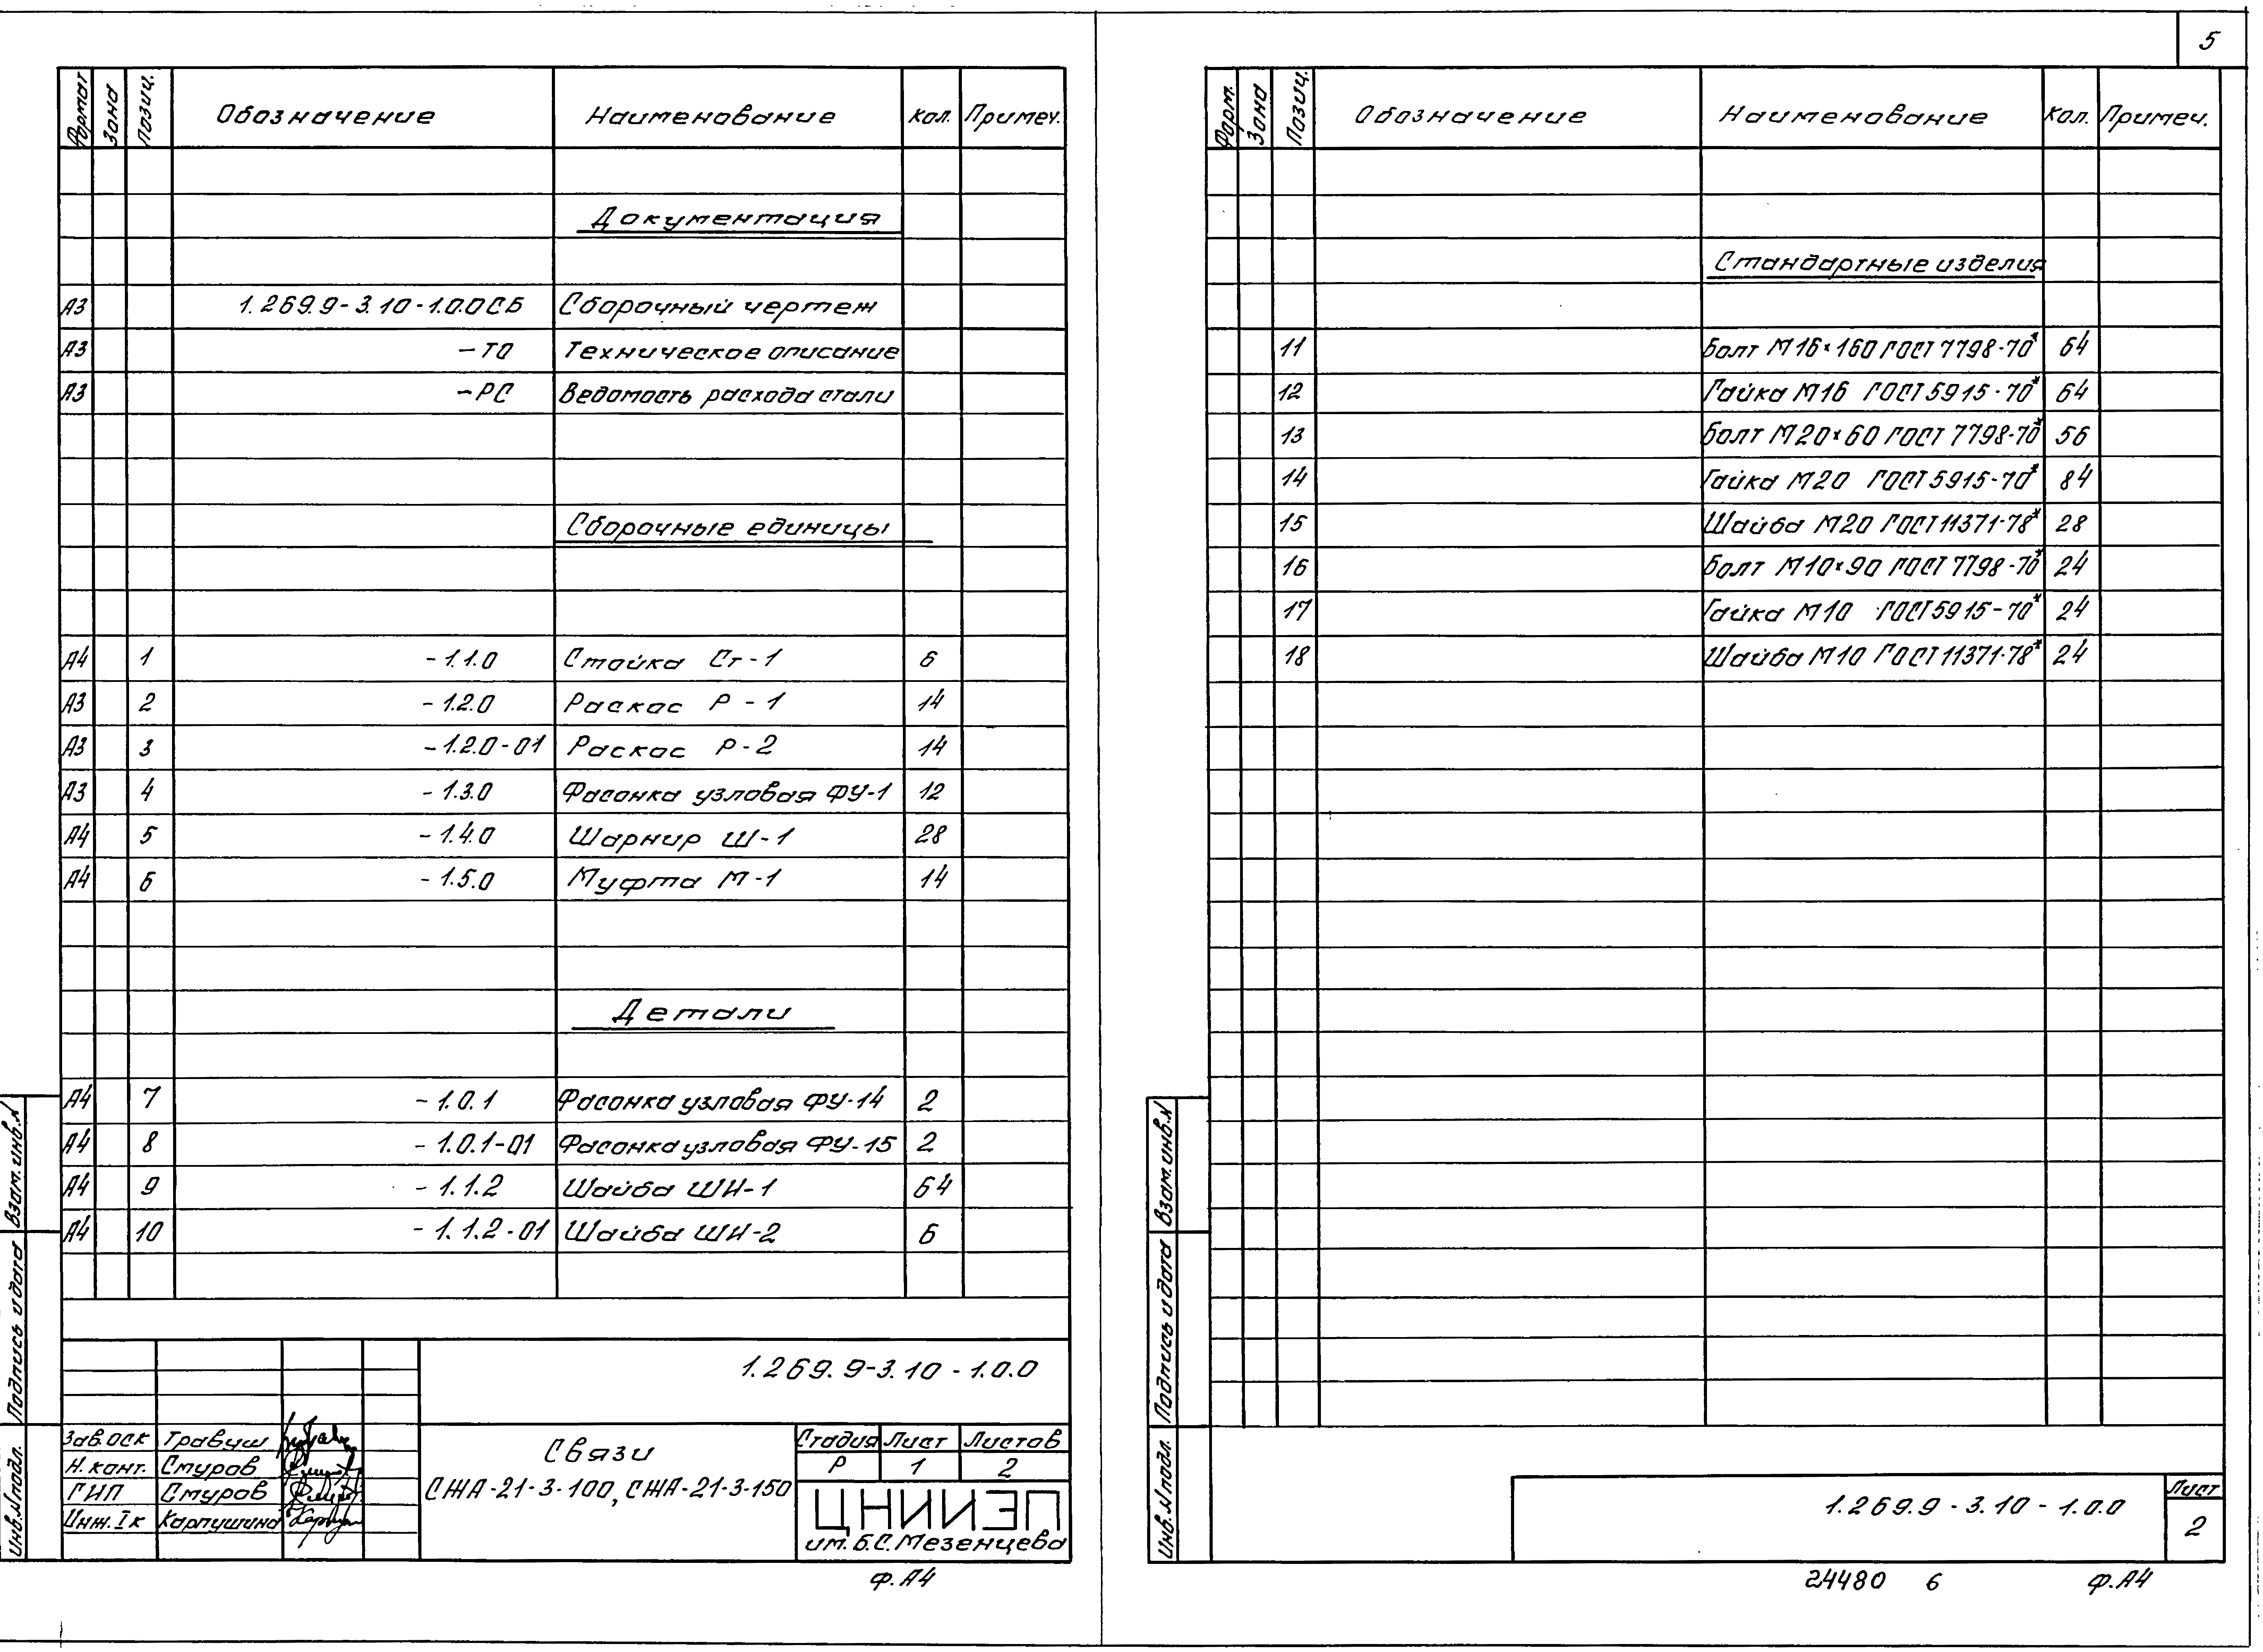 5
Формат Зона Позиц. Обозначение Наименование Кол. Примеч.
Документация
А3 1.269.9-3.10-1.0.0СБ Сборочный чертеж
А3 -ТО Техническое описание
А3 -РС Ведомость расхода стали
Сборочные единицы
А4 1 -1.1.0 Стойка Ст-1 6
А3 2 -1.2.0 Раскос Р-1 14
А3 3 -1.2.0-01 Раскос Р-2 14
А3 4 -1.3.0 Фасонка узловая ФУ-1 12
А4 5 -1.4.0 Шарнир Ш-1 28
А4 6 -1.5.0 Муфта М-1 14
Детали
А4 7 -1.0.1 Фасонка узловая ФУ-14 2
А4 8 -1.0.1-01 Фасонка узловая ФУ-15 2
А4 9 -1.1.2 Шайба ШИ-1 64
А4 10 -1.1.2-01 Шайба ШИ-2 6
1.269.9-3.10-1.0.0
Зав.оск Травуш
Н.конт. Смуров
ГИП Смуров
Инж.Iк Карпушина
Связи
СЖА-21-3-100, СЖА-21-3-150
Стадия Лист Листов
Р 1 2
ЦНИИЭП
им. Б.С.Мезенцева
Инв.№подл. Подпись и дата Взам.инв.№
Ф.А4
Форм. Зона Позиц. Обозначение Наименование Кол. Примеч.
Стандартные изделия
11 Болт М16×160 ГОСТ 7798-70* 64
12 Гайка М16 ГОСТ 5915-70* 64
13 Болт М20×60 ГОСТ 7798-70* 56
14 Гайка М20 ГОСТ 5915-70* 84
15 Шайба М20 ГОСТ 11371-78* 28
16 Болт М10×90 ГОСТ 7798-70* 24
17 Гайка М10 ГОСТ 5915-70* 24
18 Шайба М10 ГОСТ 11371-78* 24
Инв.№подл. Подпись и дата Взам.инв.№
1.269.9-3.10-1.0.0
Лист
2
24480 6 Ф.А4